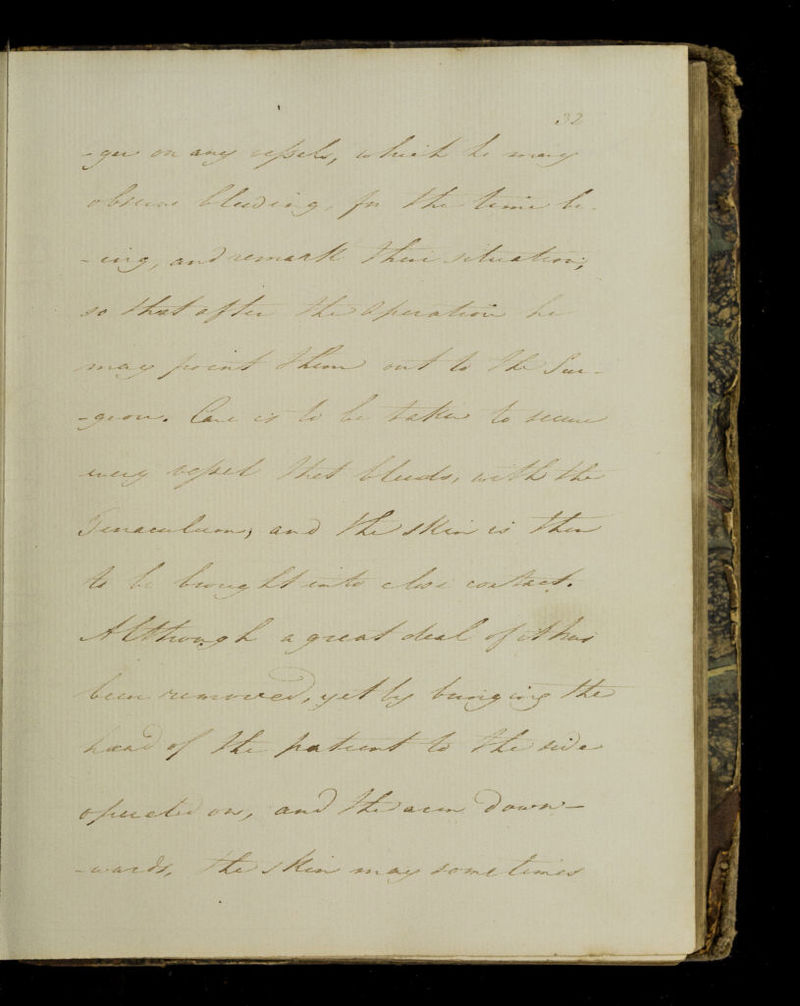 32
-ger on any vessels, which he may
observe bleeding, for the time be-
-ing, and remark their situation;
so that after the Operation he
may point them out to the Sur-
-geon. Care is to be taken to secure
every vessel that bleeds, with the
Tenaculum, and the skin is then
to be brought into close contact.
Although a great deal of it has
been removed, yet by bringing the
head of the patient to the side
operated on, and the arm down-
-wards, the skin may sometimes